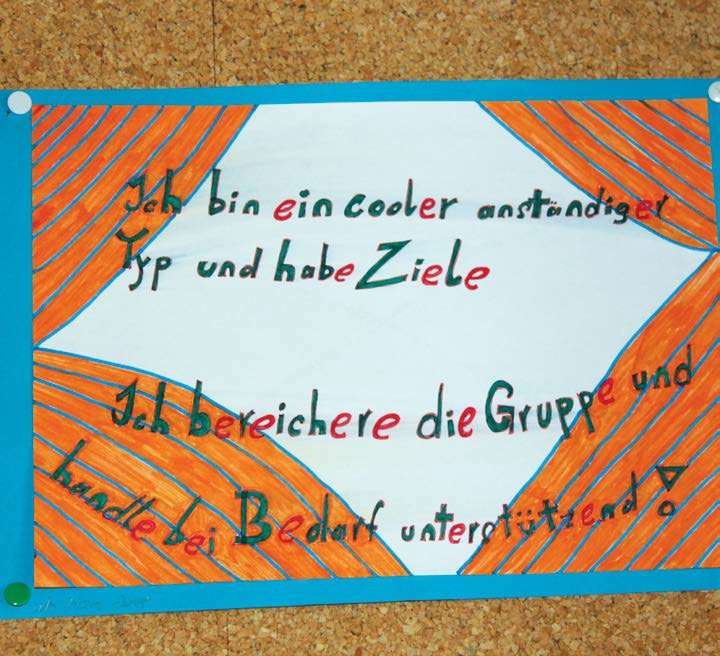 Ich bin ein cooler anständiger
Typ und habe Ziele
Ich bereichere die Gruppe und
handle bei Bedarf unterstützend!